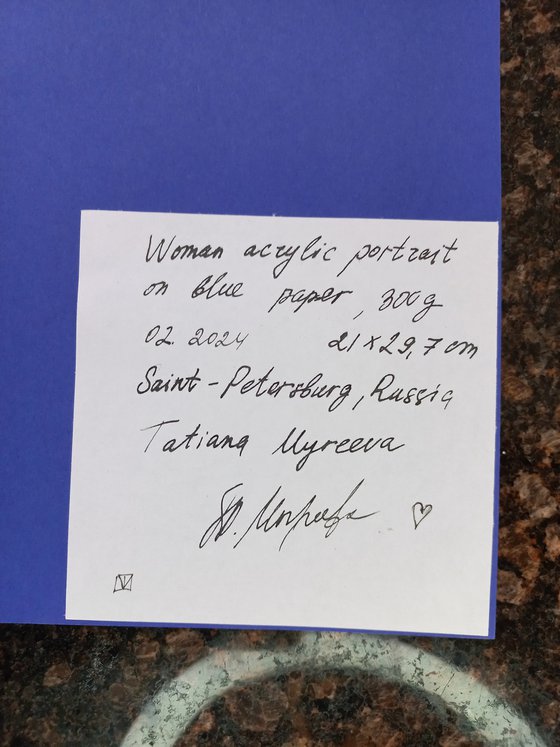 Woman acrylic portrait
on blue paper, 300g
02. 2024 21 x 29,7 cm
Saint-Petersburg, Russia
Tatiana Myreeva